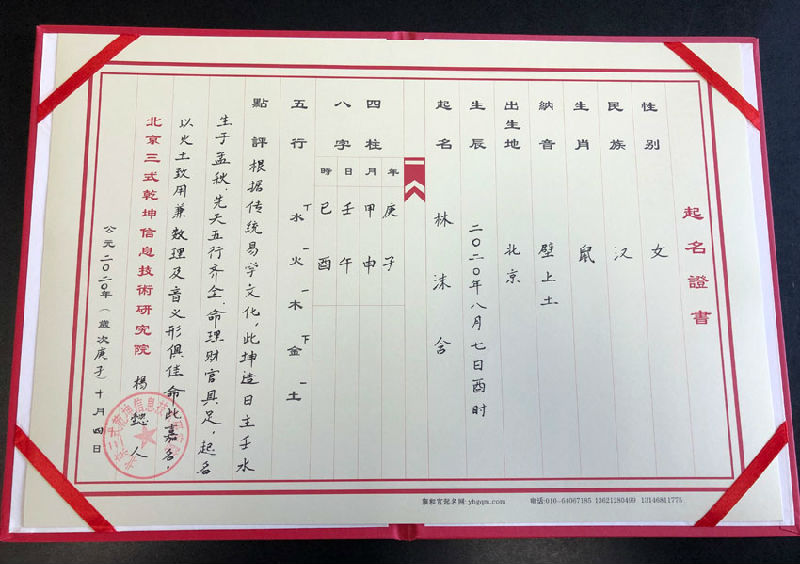 起名證書
性别 女
民族 汉
生肖 鼠
納音 壁上土
出生地 北京
生辰 二〇二〇年八月七日酉时
起名 林沫含
四柱 年 月 日 時
八字 庚子 甲申 壬午 己酉
五行 水 火 木 金 土
點評 根据传统易学文化，此坤造日主壬水
生于孟秋，先天五行齐全，命理财官具足，起名
以火土致用兼数理及音义形俱佳命此嘉名，
北京三式乾坤信息技術研究院 楊懿人
公元二〇二〇年（歲次庚子）十月四日
電话:010-64067185 13621280499 13146811775